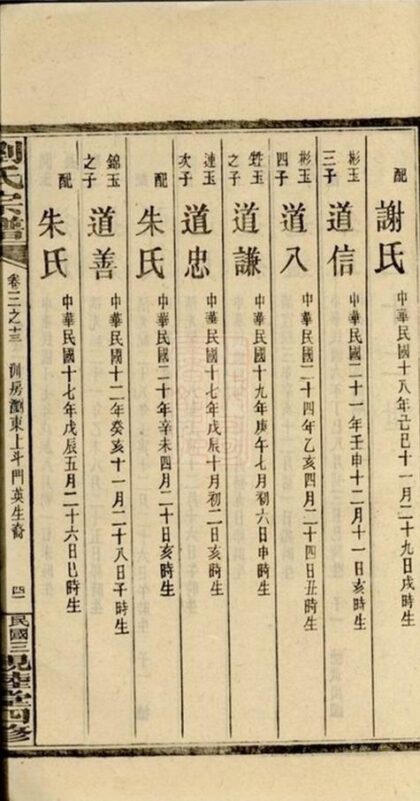 配 謝氏 中華民國十八年己巳十一月二十九日戌時生
彬玉三子 道信 中華民國二十一年壬申十二月十一日亥時生
彬玉四子 道八 中華民國二十四年乙亥四月二十四日丑時生
甡玉之子 道謙 中華民國十九年庚午七月初六日申時生
連玉次子 道忠 中華民國十七年戊辰十月初二日亥時生
配 朱氏 中華民國二十年辛未四月二十日亥時生
錦玉之子 道善 中華民國十二年癸亥十一月二十八日子時生
配 朱氏 中華民國十七年戊辰五月二十六日巳時生
劉氏宗譜 卷二之十三 房瀏東上斗門英生裔 民國三 睦堂四修